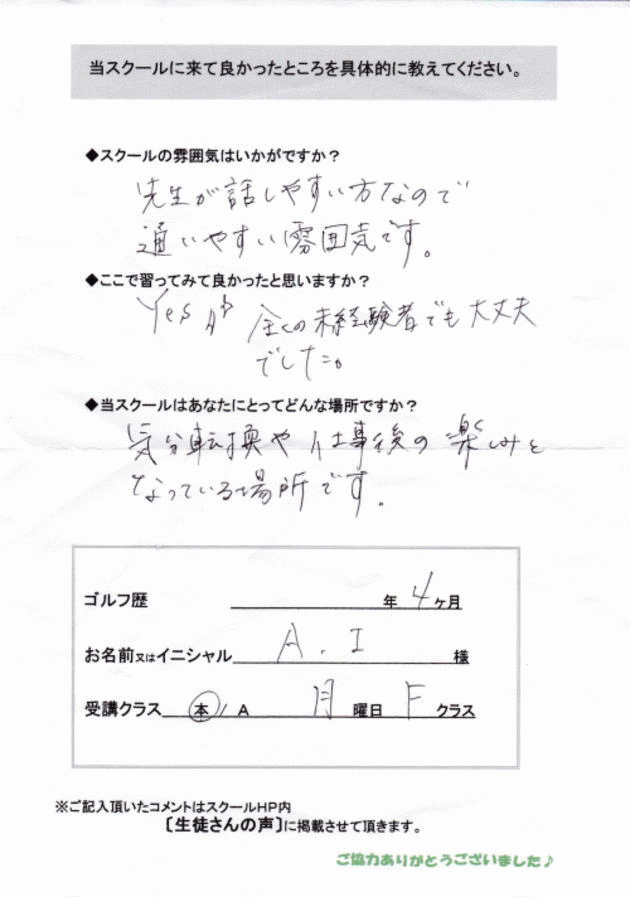 当スクールに来て良かったところを具体的に教えてください。
◆スクールの雰囲気はいかがですか？
先生が話しやすい方なので
通いやすい雰囲気です。
◆ここで習ってみて良かったと思いますか？
Yes 全くの未経験者でも大丈夫
でした。
◆当スクールはあなたにとってどんな場所ですか？
気分転換や仕事後の楽しみと
なっている場所です.
ゴルフ歴 年 4 ヶ月
お名前又はイニシャル A . I 様
受講クラス 本 / A 月 曜日 F クラス
※ご記入頂いたコメントはスクールHP内
〔生徒さんの声〕に掲載させて頂きます。
ご協力ありがとうございました♪